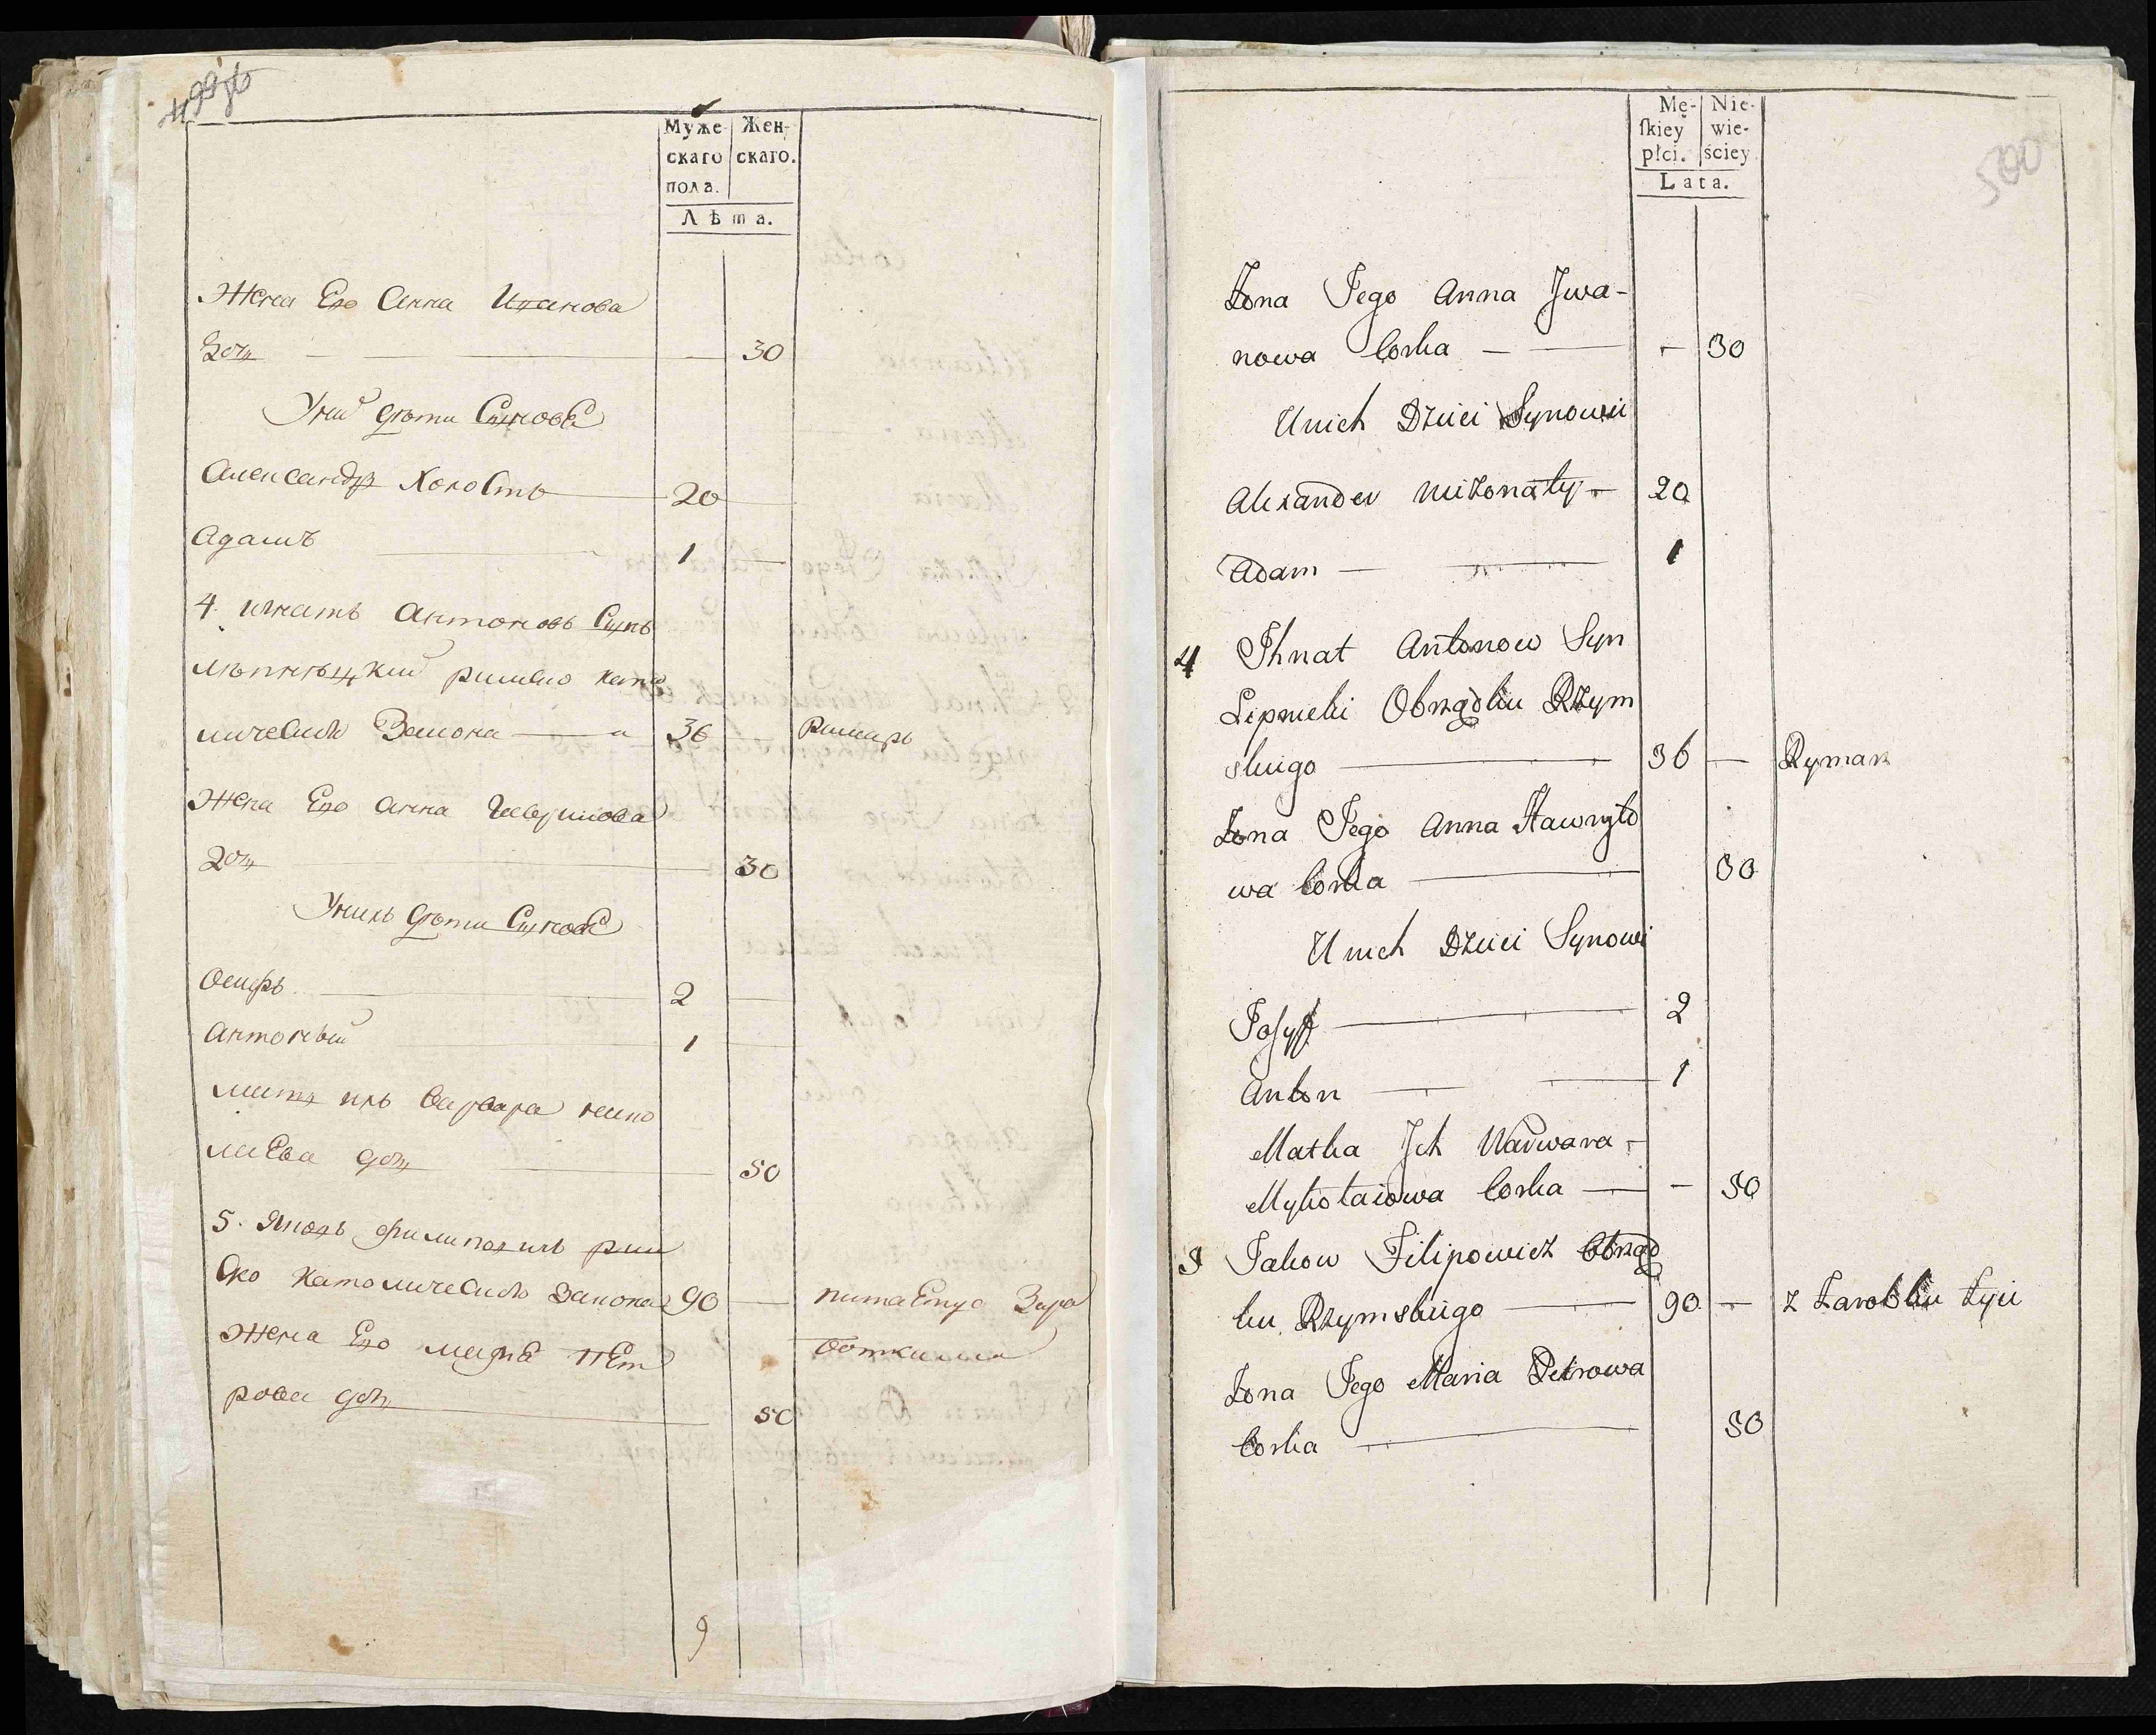 499об
Муже-
скаго
пола.
Жен-
скаго.
Лѣта.
Жена Его Анна Иванова
Доч — 30
У них дѣти Синове
Александр Холость 20 —
Адамъ — 1 —
4. игнатъ Антоновъ Синъ
лѣпнѣцкий римско като
лическаго Закона — 36 — Римарь
Жена Его Анна Гаврилова
Доч — 30
У нихъ дѣти Синове
Осифъ — 2 —
Антоный — 1 —
мать ихъ Варвара нико
лаева доч — 50
5. Яковъ филиповичъ рим
ско католическаго Закона 90 — питаетца Зара
Жена Его мария пет
ботками
рова доч — 50
9
Mę-
ſkiey
płci.
Nie-
wie-
ściey
Lata.
500
Żona Jego Anna Jwa-
nowa Corka — — 30
Unich Dzieci Synowie
Alexander nieżonaty — 20
Adam — 1
4 Ihnat Antonow Syn
Lipnicki Obrządku Rzym
skiego — 36 — Rymarz
Żona Jego Anna Hawryło
wa Corka — 30
Unich Dzieci Synowi
Josyff — 2
Anton — 1
Matka Jch Warwara —
Mykołaiowa Corka — — 50
5 Jakow Filipowicz Obrząd
ku Rzymskiego — 90 — z Zarobku żyie
Żona Jego Maria Petrowa
Corka — 50